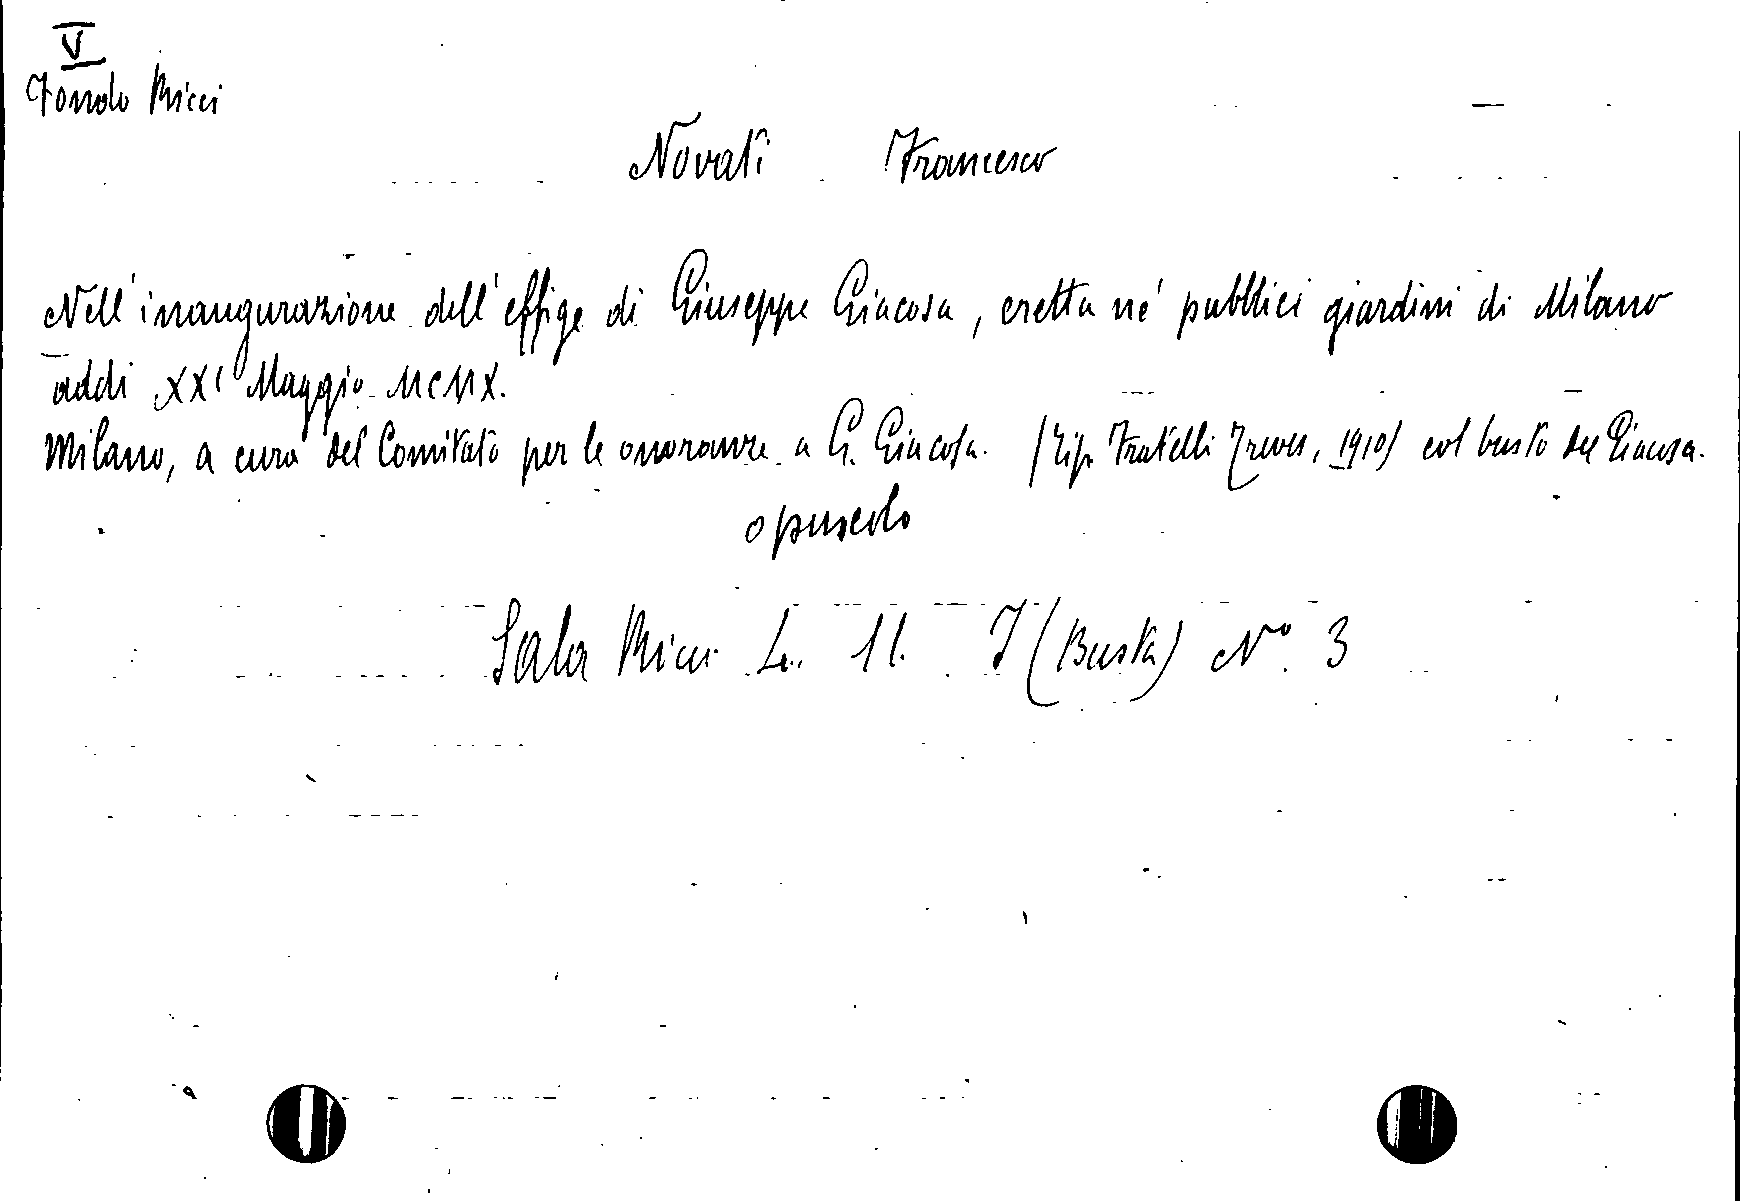 V
Fondo Ricci
Novati Francesco
Nell'inaugurazione dell'effige di Giuseppe Giacosa, eretta ne' pubblici giardini di Milano
addi XXI Maggio MCMX.
Milano, a cura del Comitato per le onoranze a G. Giacosa. (Tip. Fratelli Treves, 1910) col busto del Giacosa.
opuscolo
Sala Ricci L. 11. I (Busta) N° 3